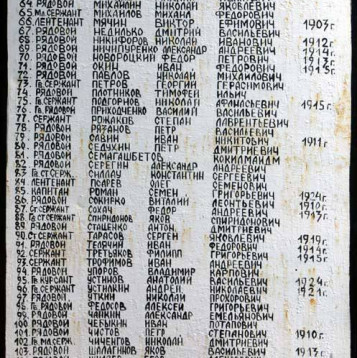 64. РЯДОВОЙ МИХАЙЛИН НИКОЛАЙ ЯКОВЛЕВИЧ
65. МЛ. СЕРЖАНТ МИХАЙЛОВ МИХАИЛ ФЕДОРОВИЧ
66. ЛЕЙТЕНАНТ МЯЧИН ВИКТОР ЕФИМОВИЧ 1903 г.
67. РЯДОВОЙ НЕДИЛЬКО ДМИТРИЙ ВАСИЛЬЕВИЧ
68. РЯДОВОЙ НИКИФОРОВ НИКОЛАЙ ИВАНОВИЧ 1912 г.
69. РЯДОВОЙ НИЧИПУРЕНКО АЛЕКСАНДР АНДРЕЕВИЧ 1914 г.
70. РЯДОВОЙ НОВОРОЦКИЙ ФЕДОР ПЕТРОВИЧ 1913 г.
71. РЯДОВОЙ ОКИН ИВАН ФЕДОРОВИЧ 1915 г.
72. РЯДОВОЙ ПАВЛОВ НИКОЛАЙ МИХАЙЛОВИЧ
73. ГВ. СЕРЖАНТ ПЕТРОВ ГЕОРГИЙ ГЕРАСИМОВИЧ
74. РЯДОВОЙ ПЛОТНИКОВ ТИМОФЕЙ ИЛЬИЧ
75. ГВ. СЕРЖАНТ ПОДГОРНОВ НИКОЛАЙ АФАНАСЬЕВИЧ 1915 г.
76. ГВ. РЯДОВОЙ ПРИХОДЧЕНКО ВАСИЛИЙ ВАСИЛЬЕВИЧ
77. СЕРЖАНТ РОМАКОВ СТЕПАН ЛАВРЕНТЬЕВИЧ
78. РЯДОВОЙ РЯЗАНОВ ПЕТР ВАСИЛЬЕВИЧ
79. РЯДОВОЙ САВИН ИВАН НИКИТОВИЧ 1911 г.
80. РЯДОВОЙ СЕДУХИН ПЕТР ДМИТРИЕВИЧ
81. РЯДОВОЙ СЕМАГАШБЕТОВ КОКИЛМАНДИ
82. РЯДОВОЙ СЕРЕГИН АЛЕКСАНДР АНДРЕЕВИЧ
83. ГВ. СТ. СЕРЖ. КОНСТАНТИН СЕРГЕЕВИЧ
84. ЛЕЙТЕНАНТ ОЛЕГ СЕМЕНОВИЧ
85. КАПИТАН РОМАН СЕМЕН ГРИГОРЬЕВИЧ 1924 г.
86. РЯДОВОЙ СОКИРКО ВИТАЛИЙ ЛЕОНТЬЕВИЧ 1910 г.
87. СТ. СЕРЖАНТ СОКАЧ ФЕДОР АНДРЕЕВИЧ 1913 г.
88. ГВ. СТ. СЕРЖАНТ СПИРИДОНОВ ЯКОВ СПИРИДОНОВИЧ
89. РЯДОВОЙ СТАЦЕНКО АНТОН ДМИТРИЕВИЧ
90. СТ. СЕРЖАНТ ТАРАСОВ СЕРГЕЙ ЯКОВЛЕВИЧ 1919 г.
91. РЯДОВОЙ ТЕЛЯЧИЙ ИВАН ФЕДОРОВИЧ 1914 г.
92. СЕРЖАНТ ТРЕТЬЯКОВ ФИЛИПП ГРИГОРЬЕВИЧ 1915 г.
93. СЕРЖАНТ ТРОФИМОВ ИВАН АНДРЕЕВИЧ
94. РЯДОВОЙ УПОРОВ ВЛАДИМИР КАРПОВИЧ
95. ГВ. КУРСАНТ УСТИНОВ АНАТОЛИЙ ВАСИЛЬЕВИЧ 1924 г.
96. ГВ. МЛ. СЕРЖАНТ УСТИНОВ НИКОЛАЙ АЛЕКСЕЕВИЧ 1921 г.
97. РЯДОВОЙ УТКИН НИКОЛАЙ ПРОХОРОВИЧ
98. ГВ. РЯДОВОЙ ФЕДОСОВ АЛЕКСЕЙ ГРИГОРЬЕВИЧ
99. РЯДОВОЙ ЧАПКИН АЛЕКСАНДР ЕМЕЛЬЯНОВИЧ
100. РЯДОВОЙ ЧЕБЫКИН ИВАН ПОТАПОВИЧ
101. РЯДОВОЙ ЧИСТОВ ПЕТР СТЕПАНОВИЧ 1910 г.
102. ГВ. МЛ. СЕРЖАНТ ЧИЧЕНГОВ НИКОЛАЙ ДМИТРИЕВИЧ
103. РЯДОВОЙ ШАЛАГИНОВ ЯКОВ ВАСИЛЬЕВИЧ 1913 г.